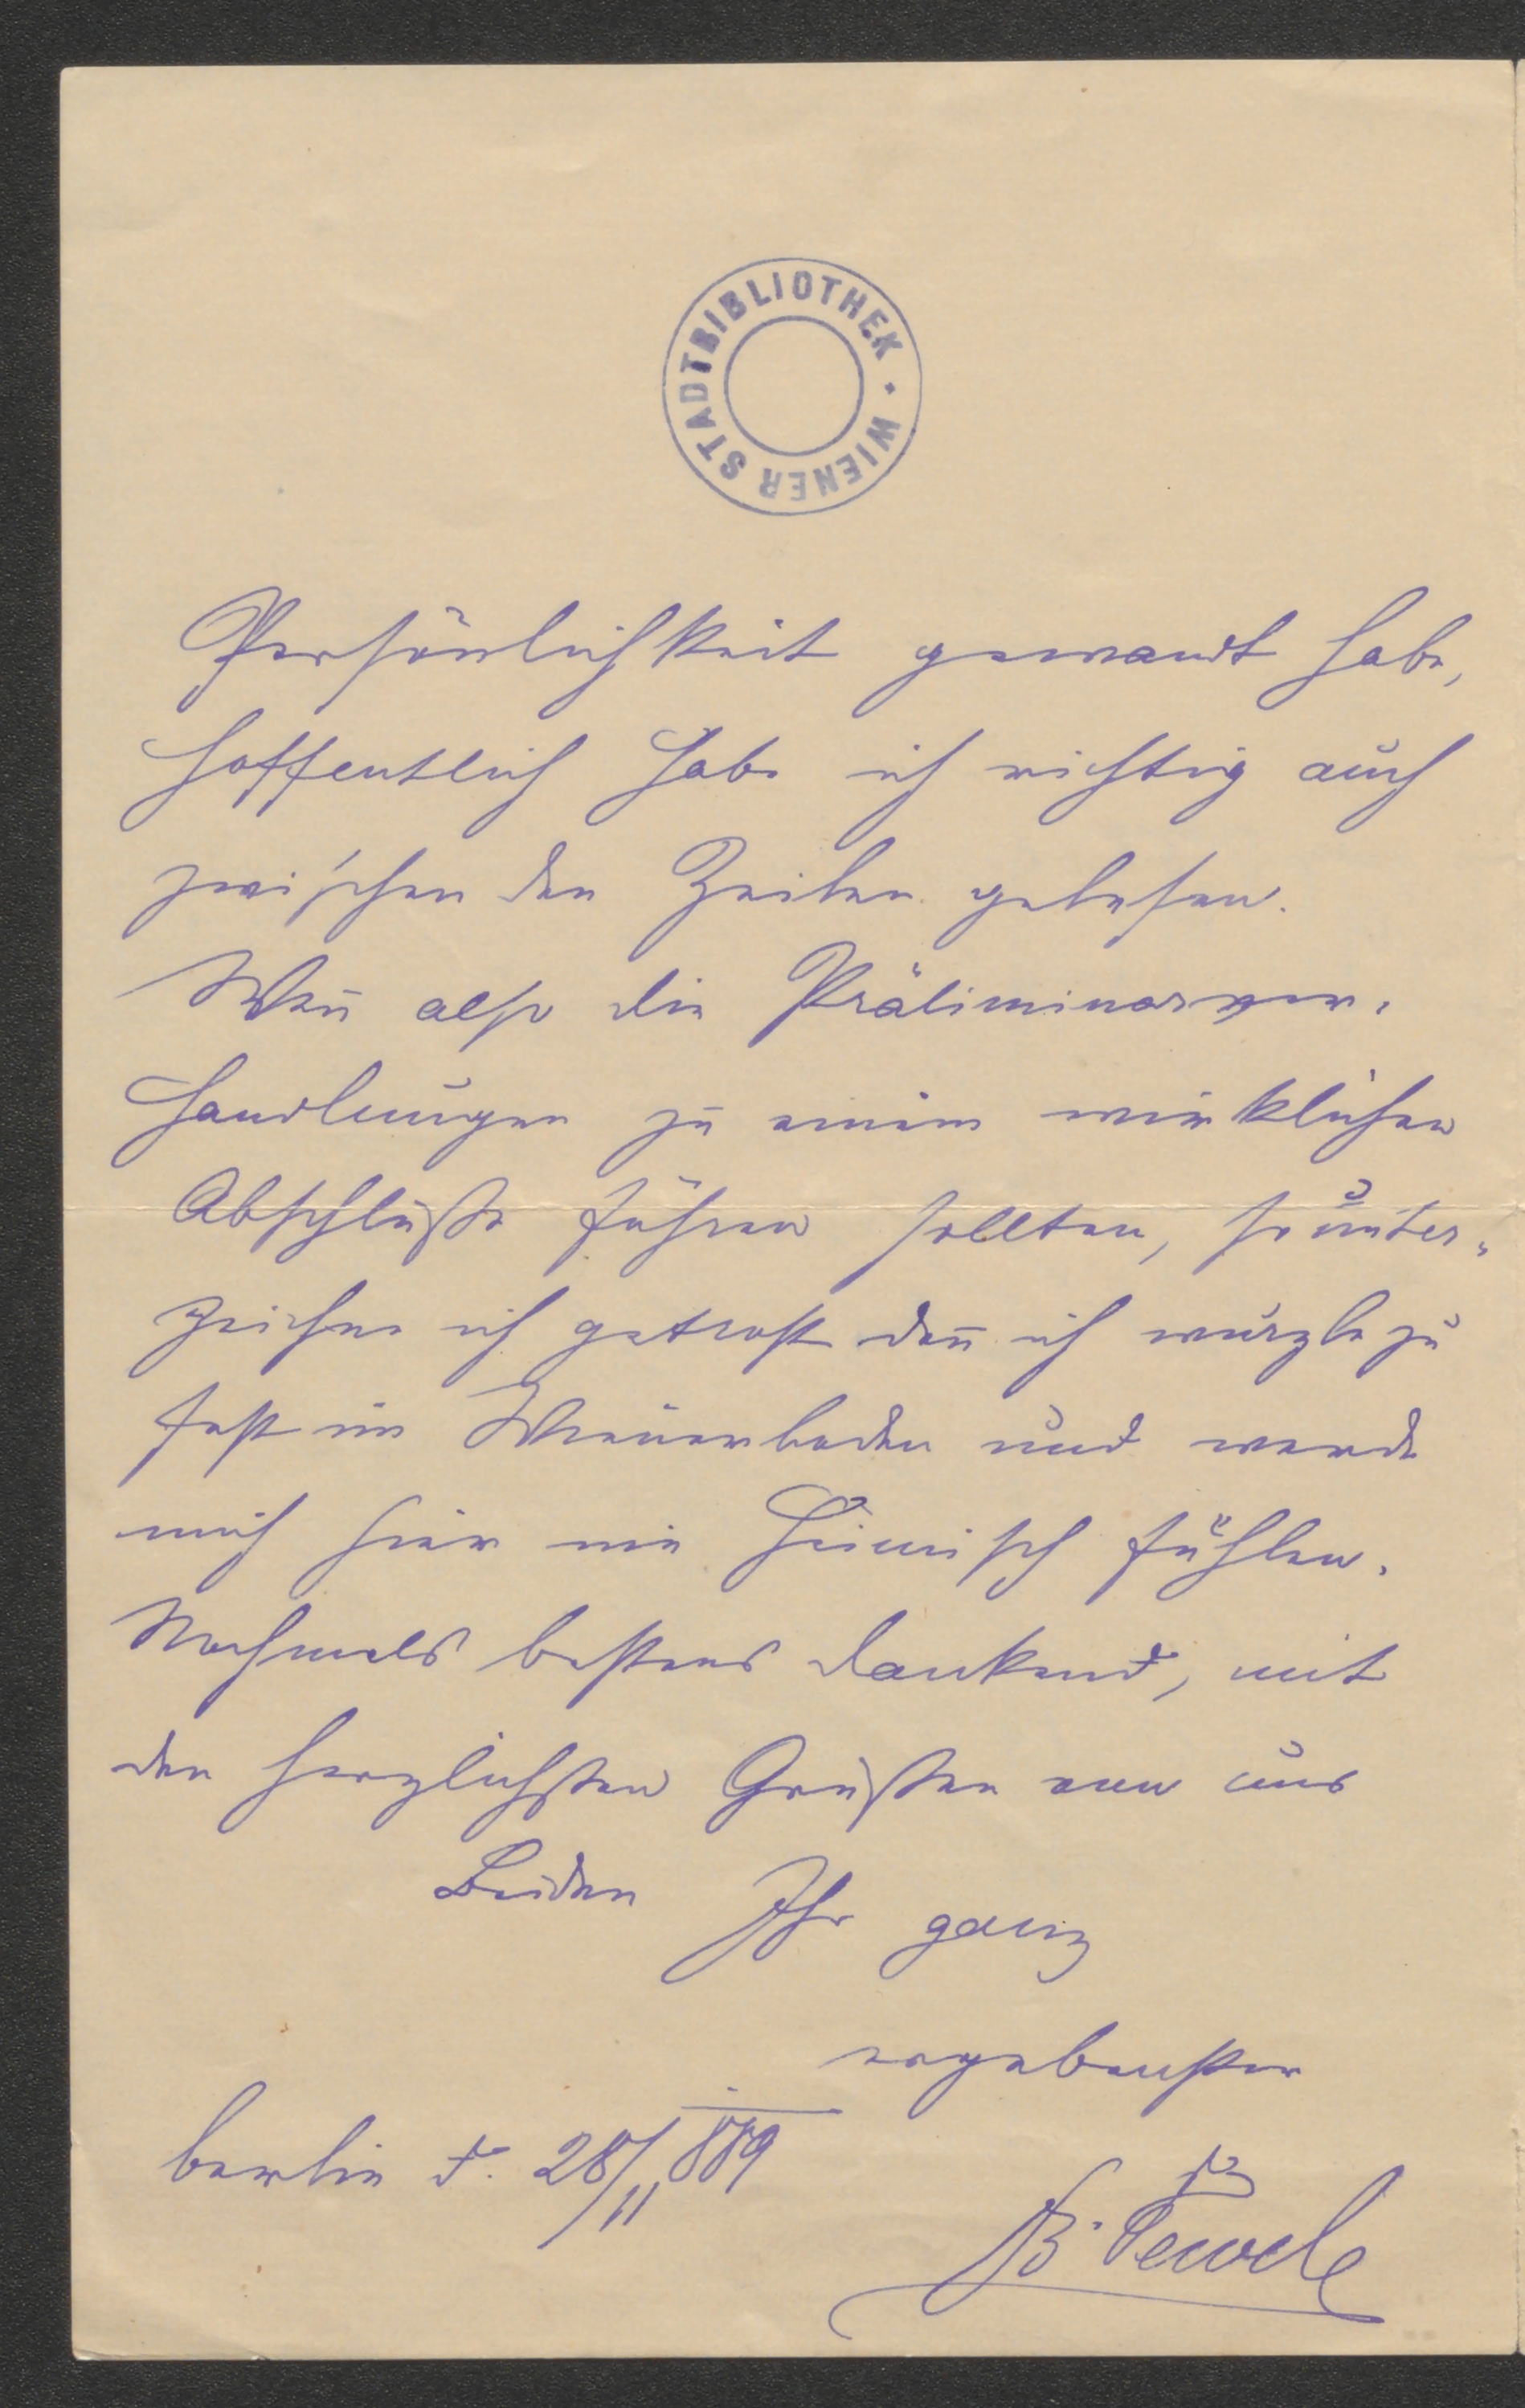 WIENER STADTBIBLIOTHEK
Persönlichkeit gewandt habe,
hoffentlich habe ich richtig auch
zwischen den Zeilen gelesen.
Weñ also die Präliminarver-
handlungen zu einem wirklichen
Abschluße führen sollten, so unter-
zeichne ich getrost deñ ich wurzle zu
fest im Wienerboden und werde
mich hier nie heimisch fühlen.
Nochmals bestens dankend, mit
den herzlichsten Grüßen von uns
Beiden Ihr ganz
ergebenster
Berlin d. 28/11 889
Tewele